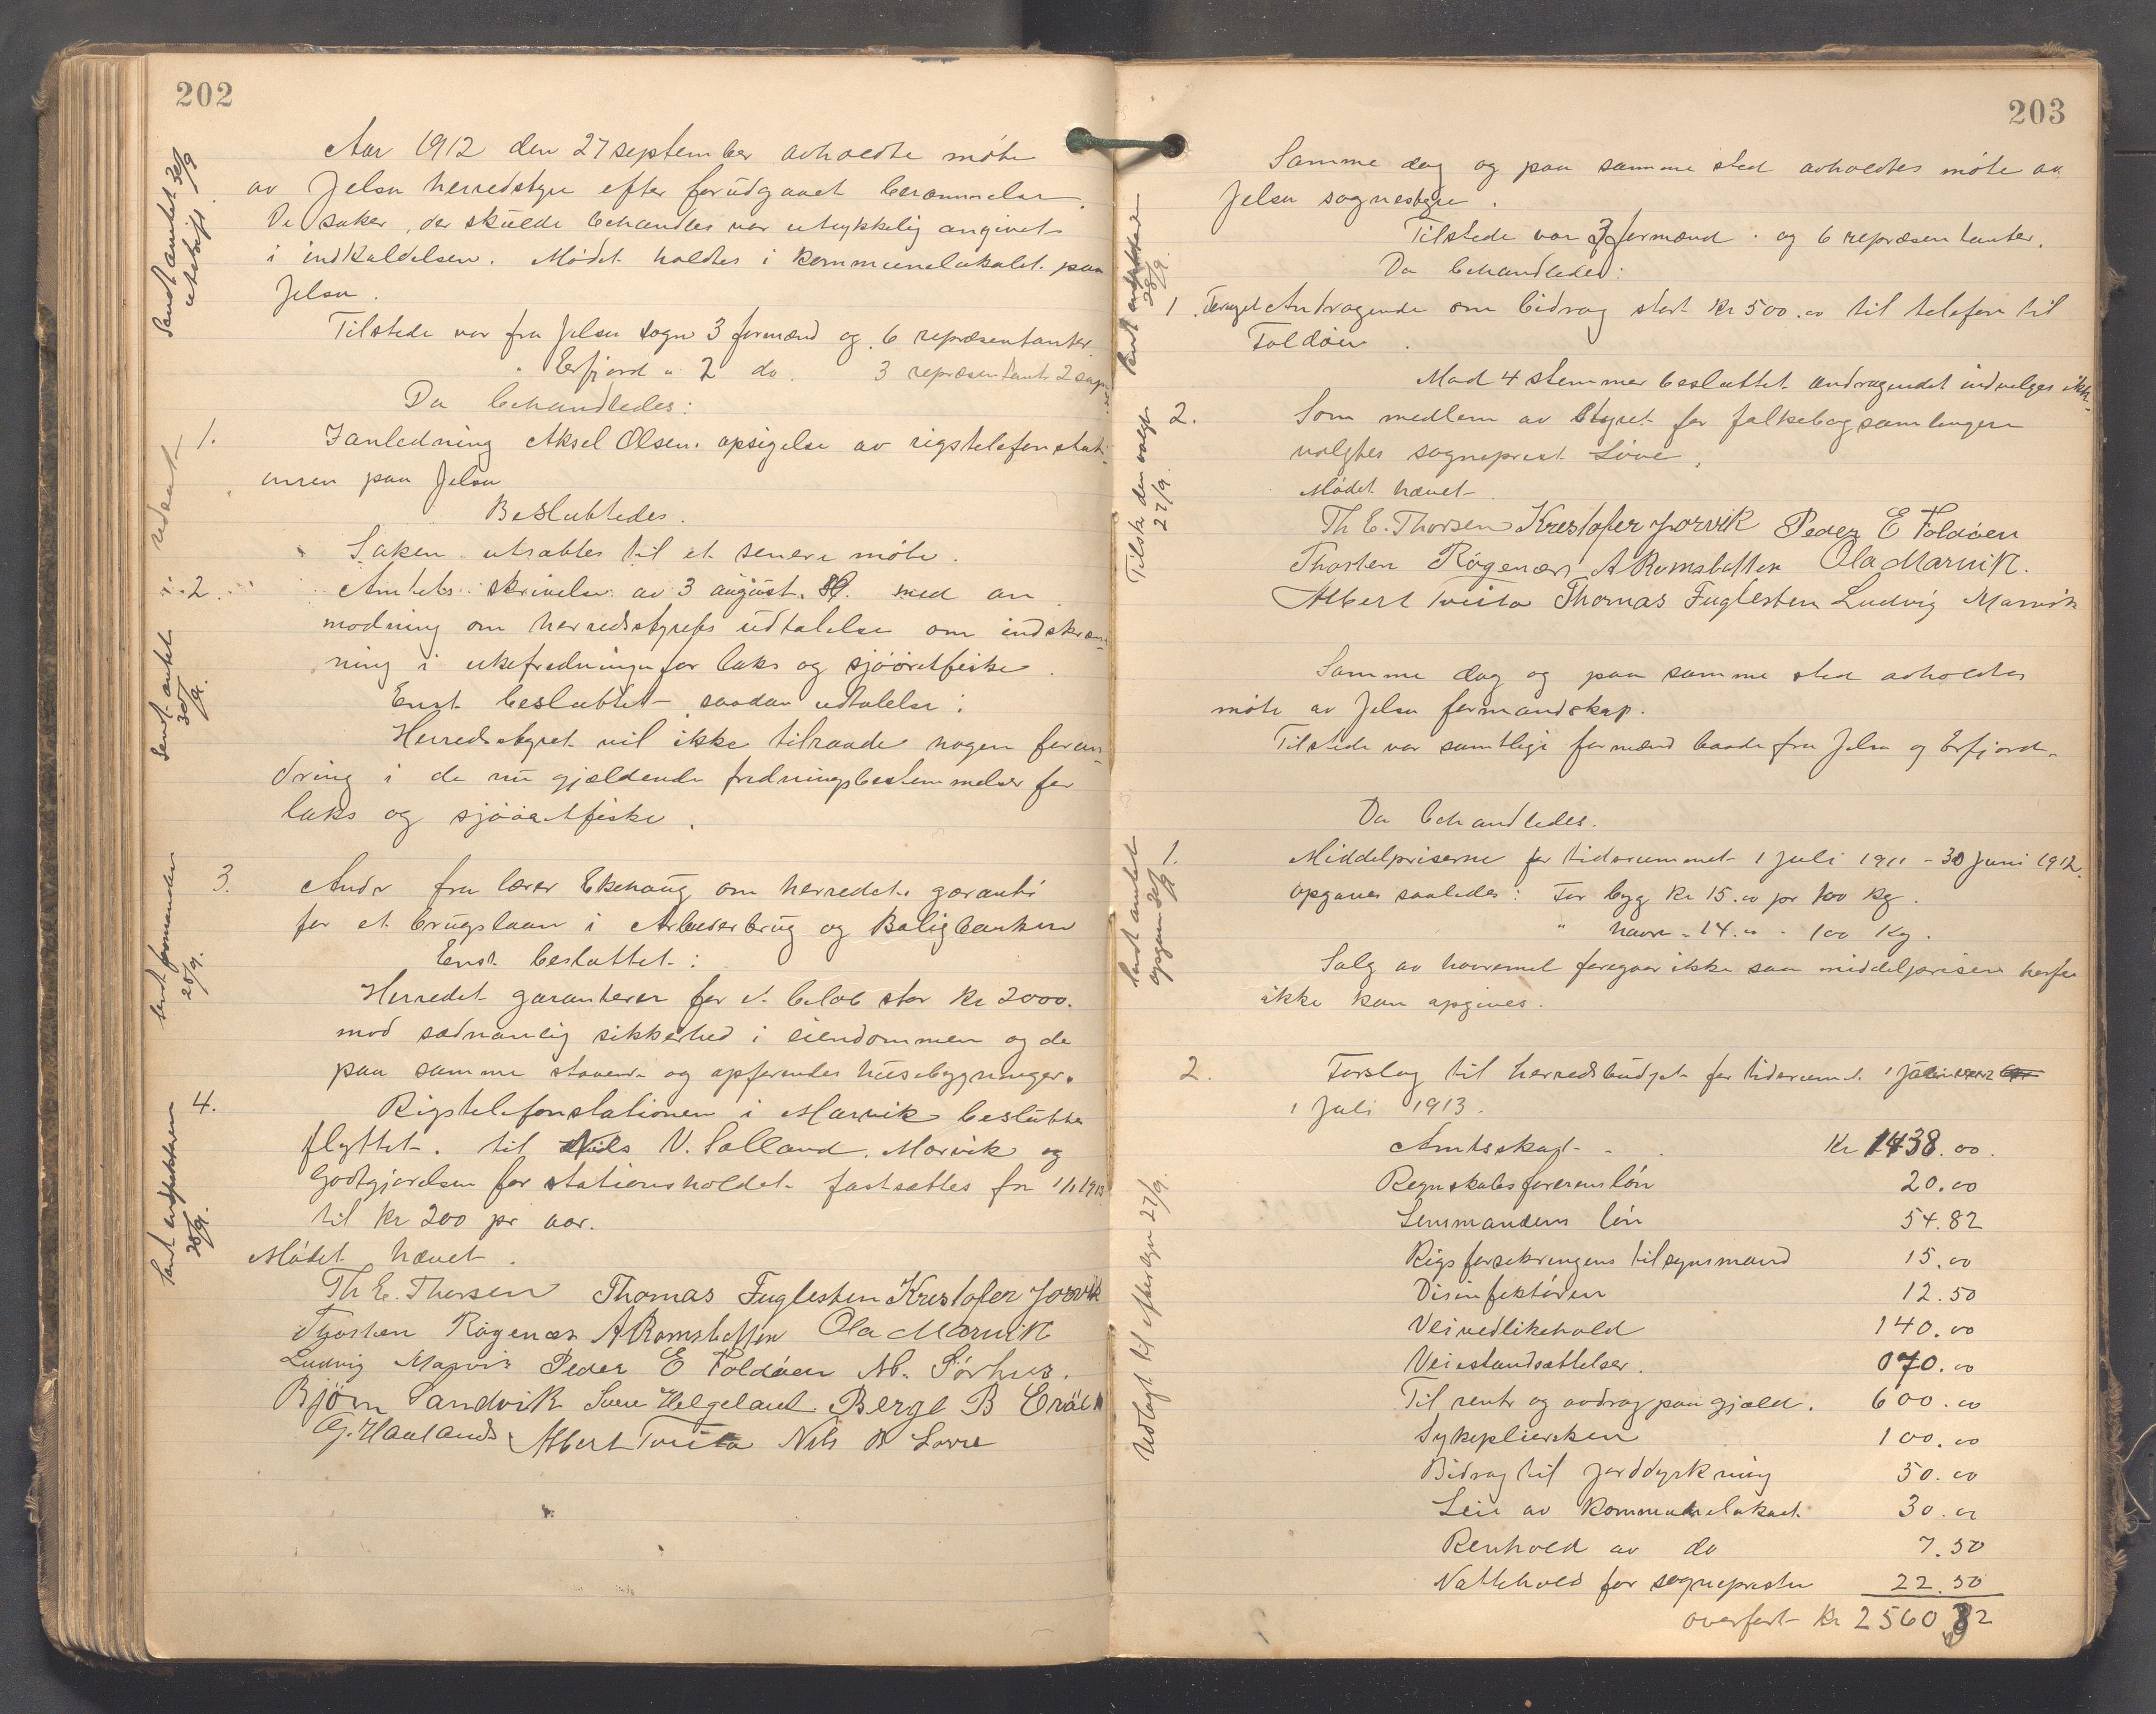 202
Aar 1912 den 27 september avholdte møte
av Jelsa herredstyre efter forudgaaet berammelse.
De saker, der skulde behandles var utrykkelig angivet
i indkaldelsen. Mødet holdtes i kommunelokalet paa
Jelsa.
Tilstede var fra Jelsa sogn 3 formænd og 6 repræsentanter
" Erfjord " 2 do. 3 repræsentanter 2
Da behandledes:
1. I anledning Aksel Olsens opsigelse av rigstelefonstati-
onen paa Jelsa
Besluttedes.
Saken utsættes til et senere møte.
2. Amtets skrivelse av 3 august d.a. med an
modning om herredsstyrets udtalelse om indskrænk-
ning i ukefredningen for laks og sjøørretfiske.
Enst. besluttet saadan udtalelse:
Herredsstyret vil ikke tilraade nogen foran-
dring i de nu gjældende fredningsbestemmelser for
laks og sjøørretfiske.
3. Andr fra lærer Ekehaug om herredets garanti
for et brugslaan i Arbeiderbrug og Boligbanken
Enst. besluttet:
Herredet garanterer for et beløb stor kr 2000.
mod sædvanlig sikkerhed i eiendommen og de
paa samme staaende og opførendes husebygninger.
4. Rigstelefonstationen i Marvik besluttes
flyttet til Nils V. Salland, Marvik og
godtgjørelsen for stationsholdet fastsættes fra 1/1 1913
til kr 200 pr aar.
Mødet hævet.
Th E. Thorsen Thomas Fuglesten Kristofer Jorvik
Thorsten Røgenæs A Ramsletten Ola Marvik
Ludvig Marvik Peder E Foldøen M. Sørhus.
Bjørn Sandvik Svein Helgeland Berge B Eråen
G. Haaland Albert Tveita Nils B Lovre
Sendt amtet 30/9
utskrift
udsat
Sendt amtet
30/9.
Sendt formanden
28/9.
Sendt inspektøren
28/9.
203
Samme dag og paa samme sted avholdtes møte av
Jelsa sognestyre.
Tilstede var 3 formænd og 6 repræsentanter.
Da behandledes:
1. Andragende om bidrag stort kr 500.00 til telefon til
Foldøen.
Mod 4 stemmer besluttet andragendet indvilges ikke.
2. Som medlem av styret for folkebogsamlingen
valgtes sogneprest Løve.
Mødet hævet.
Th E. Thorsen Kristofer Jorvik Peder E Foldøen
Thorsten Røgenæs A Ramsletten Ola Marvik.
Albert Tveita Thomas Fuglesten Ludvig Marvik
Samme dag og paa samme sted avholdtes
møte av Jelsa formandskap.
Tilstede var samtlige formænd baade fra Jelsa og Erfjord.
Da behandledes.
1. Middelpriserne for tidsrummet 1 juli 1911 - 30 juni 1912.
opgaves saaledes: For byg kr 15.00 pr 100 kg.
" havre " 14.00 - 100 kg.
Salg av havremel foregaar ikke saa middelprisen herfor
ikke kan opgives.
2. Forslag til herredsbudget for tidsrummet 1
1 juli 1913.
Amtsskat - - Kr 1438.00.
Regnskabsførerens løn 20.00
Lensmandens løn 54.82
Rigsforsikringens tilsynsmand 15.00
Disinfektøren 12.50
Veivedlikehold 140.00
Veiistandsættelser. 070.00
Til rente og avdrag paa gjæld. 600.00
Sykepleiersken 100.00
Bidrag til jorddyrkning 50.00
Leie av kommunelokalet 30.00
Renhold av do 7.50
Nattehold for sognepresten 22.50
overført Kr 2560.32
Sendt andrageren
28/9.
Tilsk. den valgte
27/9.
Sendt amtet
opgave 30/9
Utlagt til eftersyn 27/9.